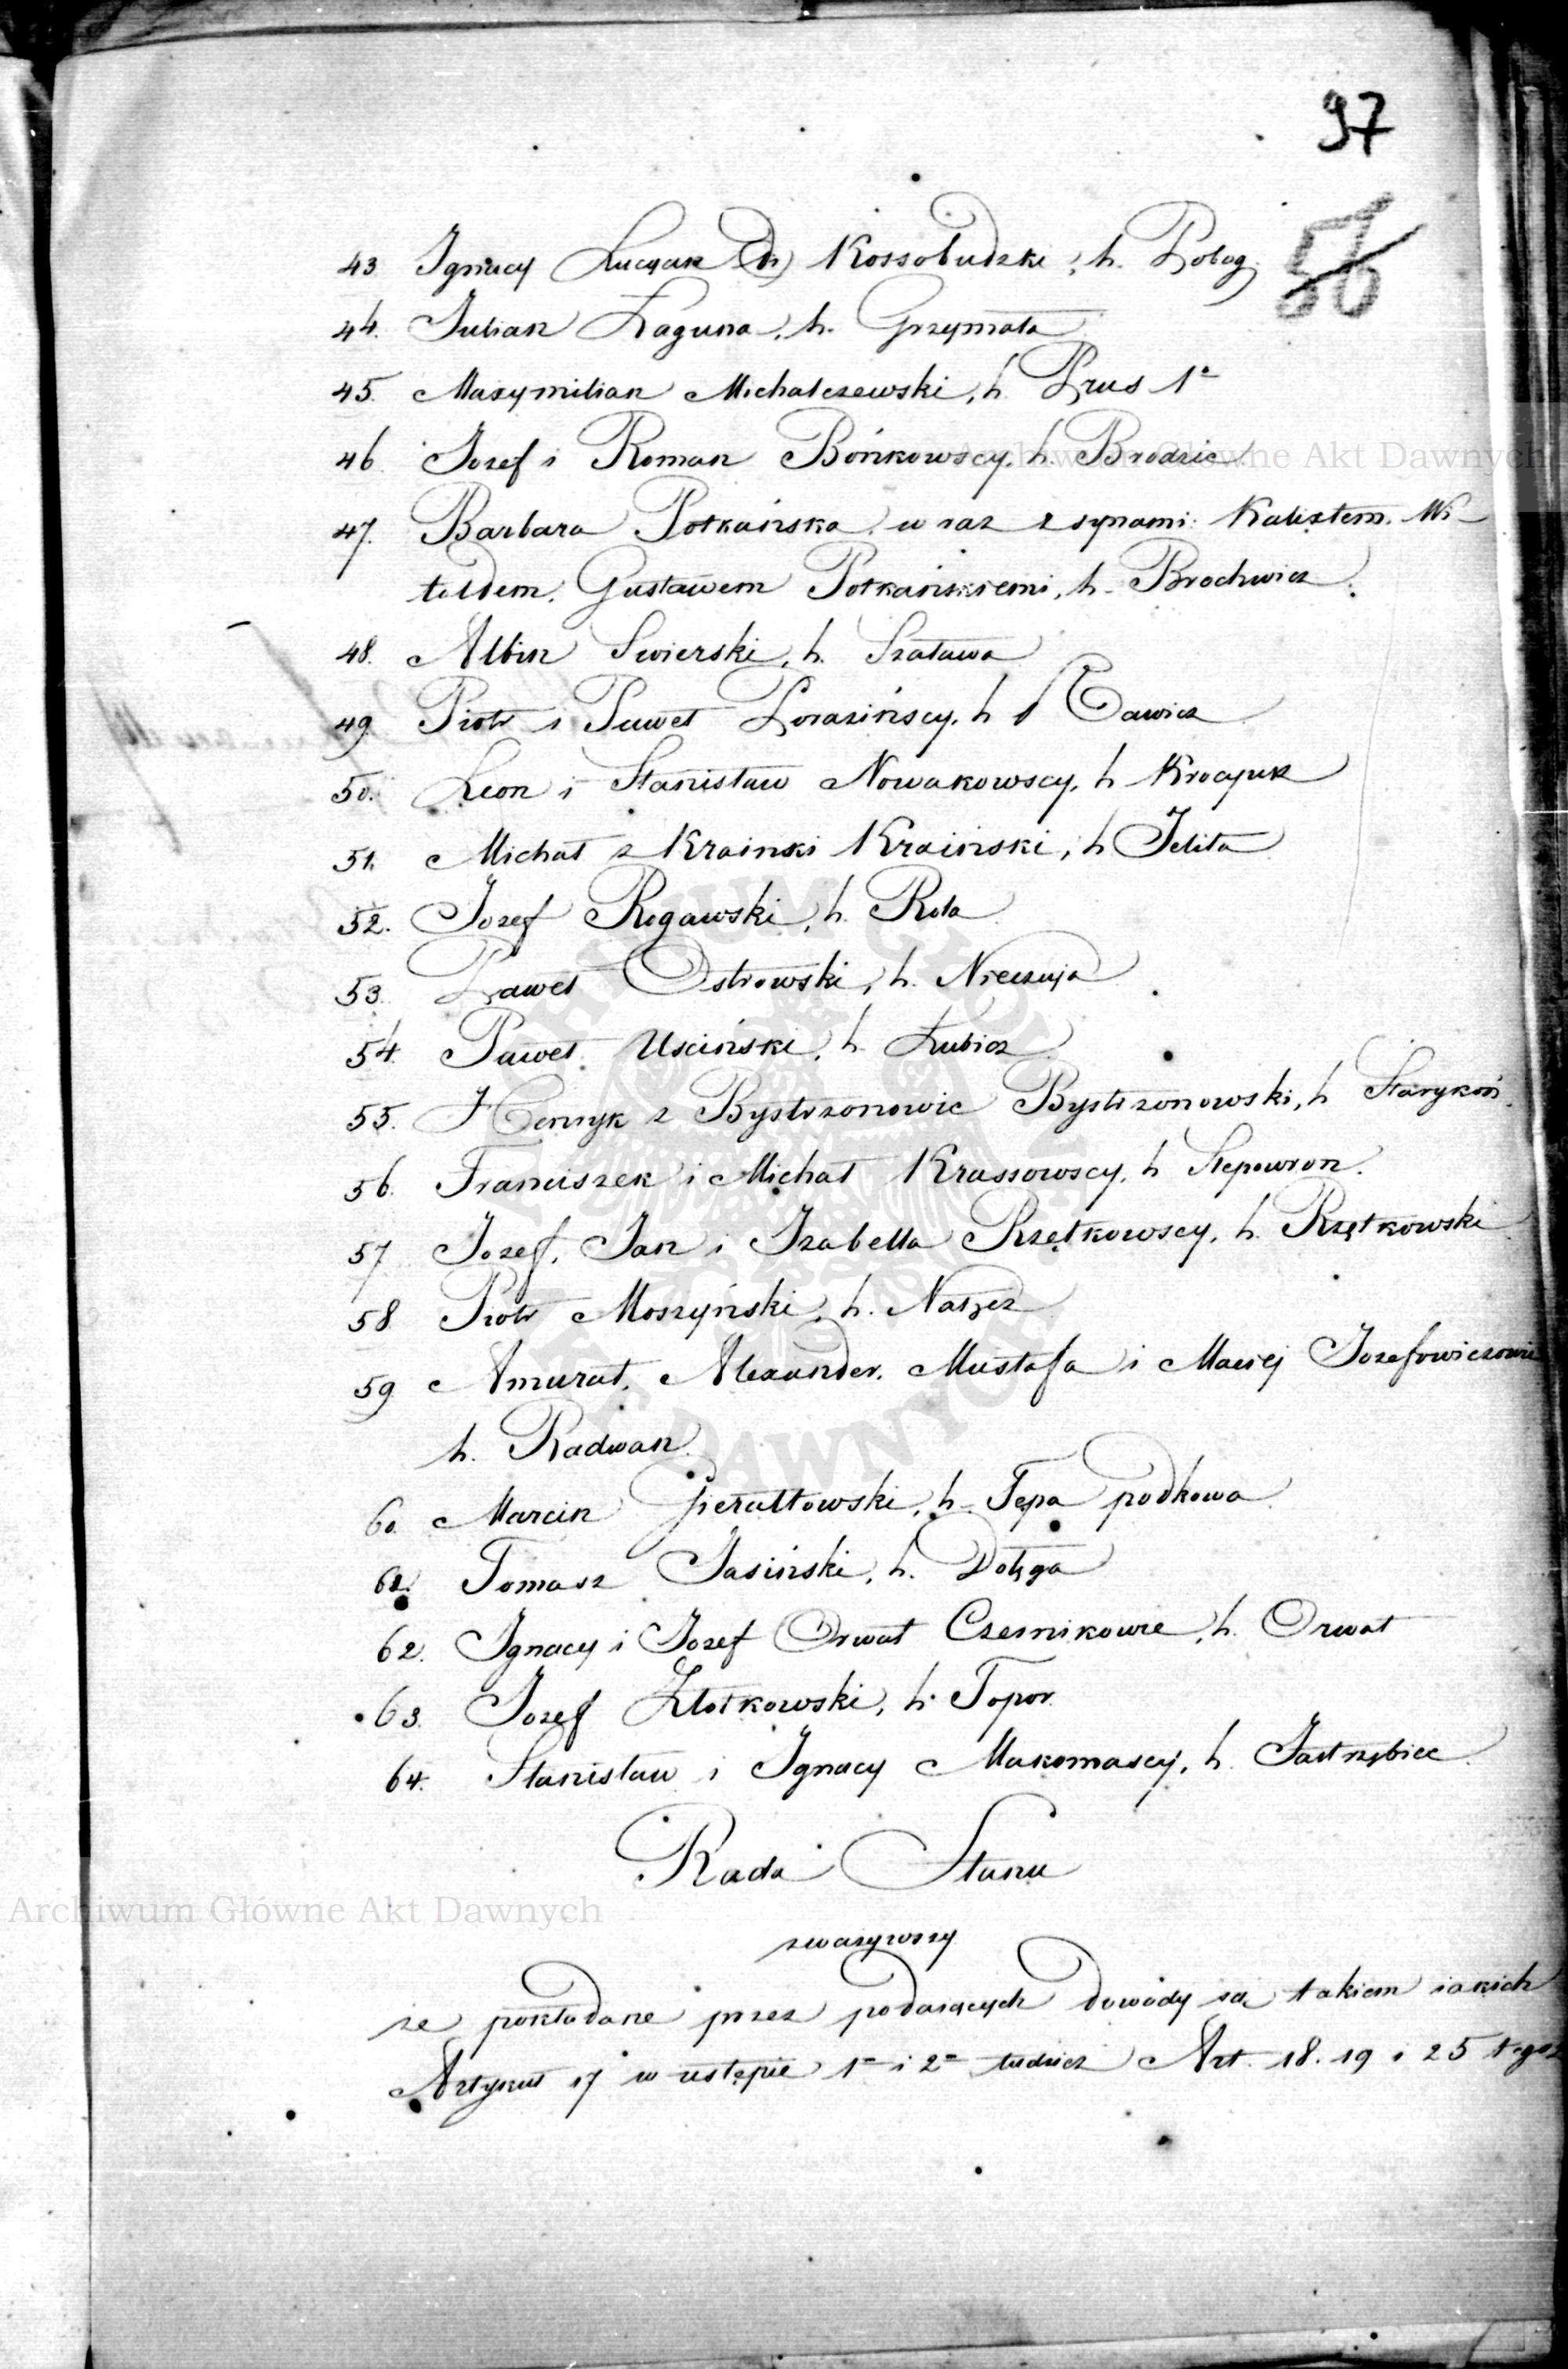 97
56
43. Ignacy Lucyan (dr) Kossobudzki, h. Pobog.
44. Julian Łaguna, h. Grzymała
45. Maxymilian Michalczewski, h. Prus 1º
46. Jozef i Roman Bońkowscy, h. Brodzic
47. Barbara Potkańska w raz z synami: Kalixtem, Wi-
toldem, Gustawem Potkańskiemi, h. Brochwicz.
48. Albin Swierski, h. Szaława
49. Piotr i Paweł Łorazińscy, h. Rawicz
50. Leon i Stanisław Nowakowscy, h. Krocyusz
51. Michał z Krainski Kraiński, h. Jelita
52. Jozef Rogawski, h. Rola
53. Paweł Ostrowski, h. Nieczuja
54. Paweł Usciński, h. Lubicz
55. Henryk z Bystrzonowic Bystrzonowski, h. Starykoń.
56. Franciszek i Michał Krassowscy, h. Slepowron.
57. Jozef, Jan i Izabella Rzętkowscy, h. Rzętkowski
58. Piotr Moszyński, h. Nałęcz
59. Amurat, Alexander, Mustafa i Maciej Jozefowiczowie
h. Radwan.
60. Marcin Gierałtowski, h. Tępa podkowa.
61. Tomasz Jasiński, h. Dołęga
62. Ignacy i Jozef Orwat Czernikowie, h. Orwat
63. Jozef Złotkowski, h. Topor.
64. Stanisław i Ignacy Makomascy, h. Jastrzębiec.
Rada Stanu
zważywszy
że pokładane przez podaiących dowody są takiem iakich
Artykuł 17 w ustępie 1m i 2m tudzież Art. 18. 19 i 25 tegoż
Archiwum Główne Akt Dawnych
Archiwum Główne Akt Dawnych